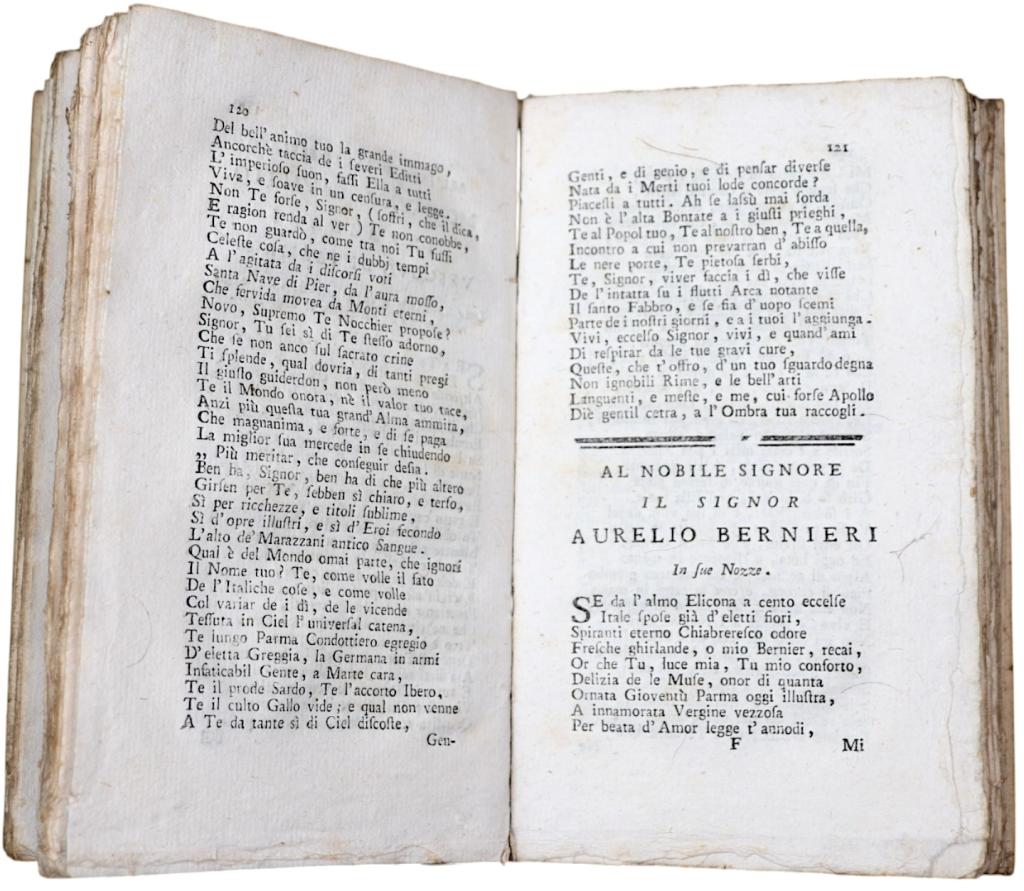 120
Del bell' animo tuo la grande immago,
Ancorchè taccia de i ſeveri Editti
L' imperioſo ſuon, faſſi Ella a tutti
Viva, e ſoave in un cenſura, e legge.
Non Te forſe, Signor, (ſoffri, che il dica,
E ragion renda al ver) Te non conobbe,
Te non guardò, come tra noi Tu fuſſi
Celeſte coſa, che ne i dubbj tempi
A l' agitata da i diſcorſi voti
Santa Nave di Pier, da l' aura moſſo,
Che fervida movea da Monti eterni,
Novo, Supremo Te Nocchier propoſe?
Signor, Tu ſei sì di Te ſteſſo adorno,
Che ſe non anco ſul ſacrato crine
Ti ſplende, qual dovria, di tanti pregi
Il giuſto guiderdon, non però meno
Te il Mondo onora, nè il valor tuo tace,
Anzi più queſta tua grand' Alma ammira,
Che magnanima, e forte, e di ſe paga
La miglior ſua mercede in ſe chiudendo
„ Più meritar, che conſeguir deſia.
Ben ha, Signor, ben ha di che più altero
Girſen per Te, ſebben sì chiaro, e terſo,
Sì per ricchezze, e titoli ſublime,
Sì d' opre illuſtri, e sì d' Eroi fecondo
L'alto de' Marazzani antico Sangue.
Qual è del Mondo omai parte, che ignori
Il Nome tuo? Te, come volle il fato
De l' Italiche coſe, e come volle
Col variar de i dì, de le vicende
Teſſuta in Ciel l' univerſal catena,
Te lungo Parma Condottiero egregio
D' eletta Greggia, la Germana in armi
Infaticabil Gente, a Marte cara,
Te il prode Sardo, Te l'accorto Ibero,
Te il culto Gallo vide; e qual non venne
A Te da tante sì di Ciel diſcoſte,
Gen-
121
Genti, e di genio, e di penſar diverſe
Nata da i Merti tuoi lode concorde?
Piaceſti a tutti. Ah ſe laſſù mai ſorda
Non è l' alta Bontate a i giuſti prieghi,
Te al Popol tuo, Te al noſtro ben, Te a quella,
Incontro a cui non prevarran d' abiſſo
Le nere porte, Te pietoſa ſerbi,
Te, Signor, viver faccia i dì, che viſſe
De l' intatta ſu i flutti Arca notante
Il ſanto Fabbro, e ſe fia d' uopo ſcemi
Parte de i noſtri giorni, e a i tuoi l'aggiunga.
Vivi, eccelſo Signor, vivi, e quand' ami
Di reſpirar da le tue gravi cure,
Queſte, che t' offro, d' un tuo ſguardo degna
Non ignobili Rime, e le bell' arti
Languenti, e meſte, e me, cui forſe Apollo
Diè gentil cetra, a l' Ombra tua raccogli.
AL NOBILE SIGNORE
IL SIGNOR
AURELIO BERNIERI
In ſue Nozze.
SE da l' almo Elicona a cento eccelſe
Itale ſpoſe già d' eletti fiori,
Spiranti eterno Chiabrereſco odore
Freſche ghirlande, o mio Bernier, recai,
Or che Tu, luce mia, Tu mio conforto,
Delizia de le Muſe, onor di quanta
Ornata Gioventù Parma oggi illuſtra,
A innamorata Vergine vezzoſa
Per beata d' Amor legge t' annodi,
F Mi